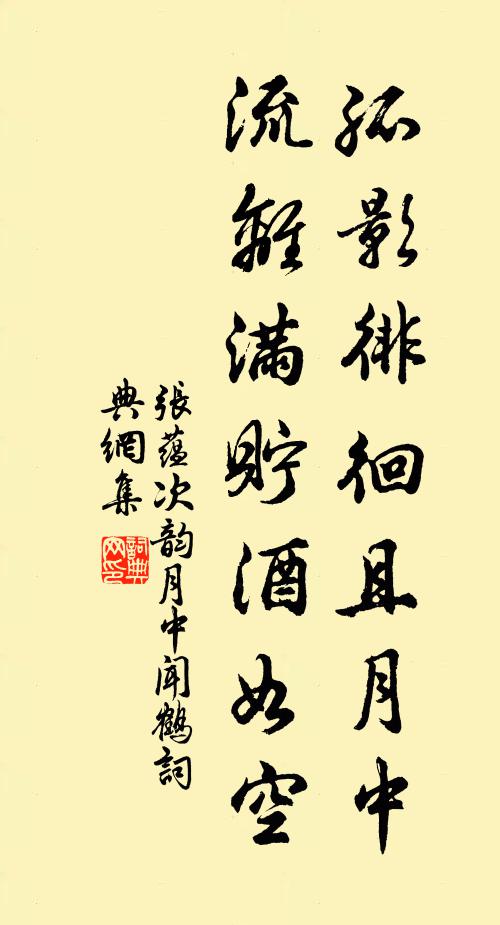 孤影徘徊且月中
流離滿貯酒如空
張蘊次韵月中聞鶴詞
典網集
詞典
网印